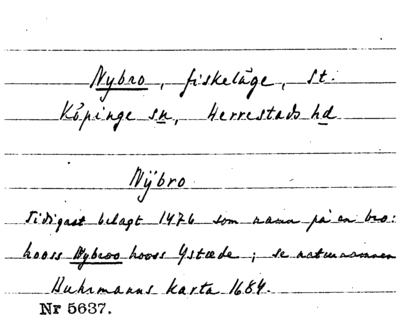 Nybro, fiskeläge, St.
Köpinge sn, Herrestads hd
Nÿbro
Tidigast belagt 1476 som namn på en bro:
hooss Nybroo hooss Ystæde; se naturnamnen
Buhrmanns karta 1684.
Nr 5637.